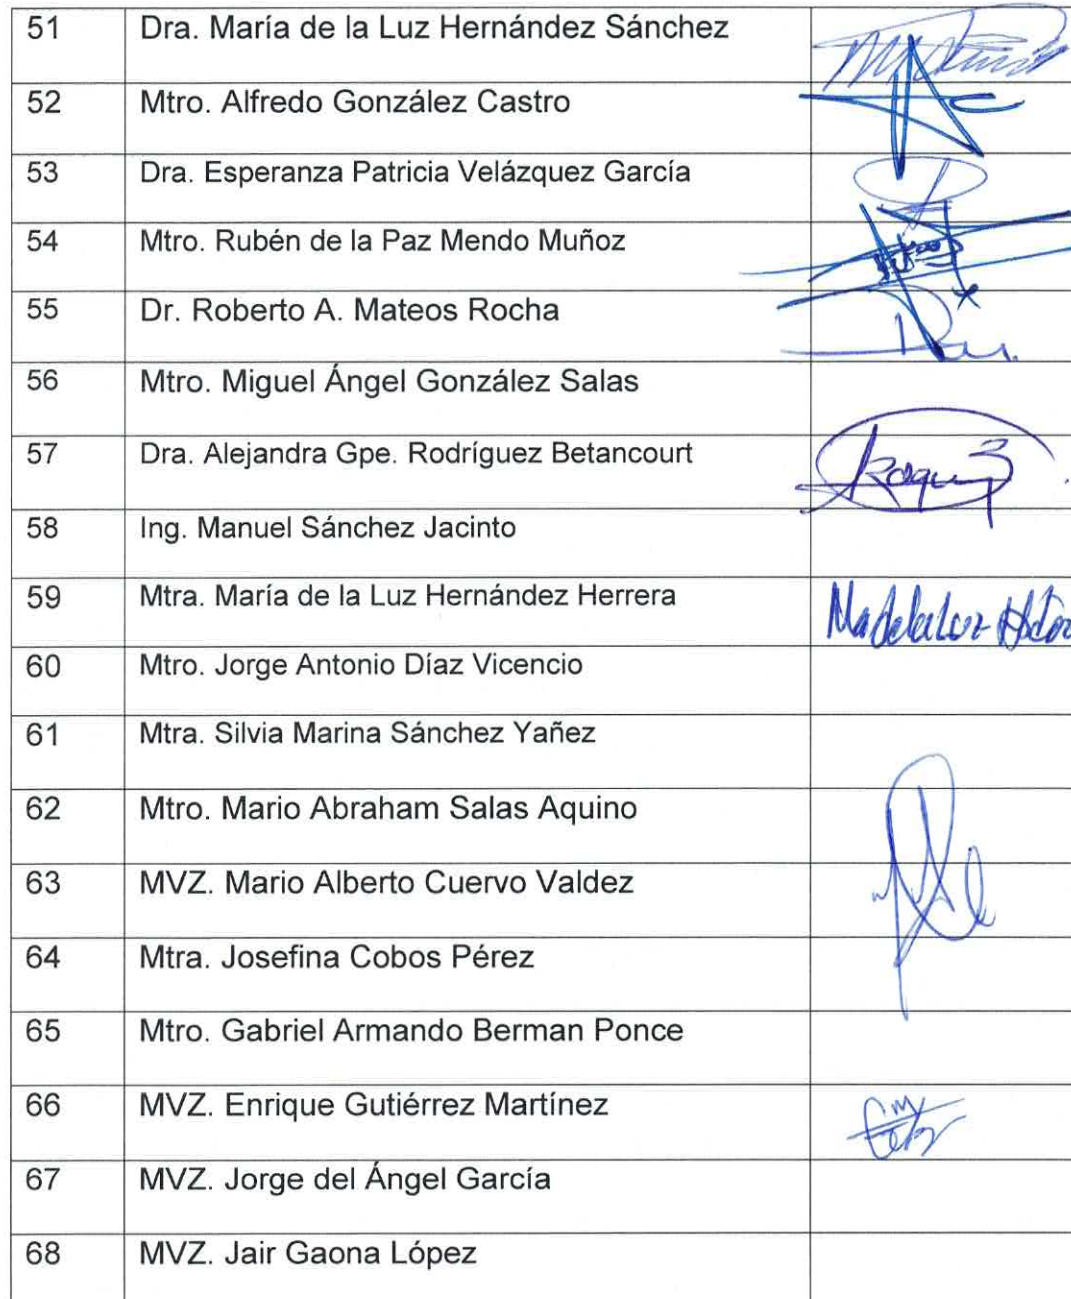 51 Dra. María de la Luz Hernández Sánchez
52 Mtro. Alfredo González Castro
53 Dra. Esperanza Patricia Velázquez García
54 Mtro. Rubén de la Paz Mendo Muñoz
55 Dr. Roberto A. Mateos Rocha
56 Mtro. Miguel Ángel González Salas
57 Dra. Alejandra Gpe. Rodríguez Betancourt
58 Ing. Manuel Sánchez Jacinto
59 Mtra. María de la Luz Hernández Herrera
60 Mtro. Jorge Antonio Díaz Vicencio
61 Mtra. Silvia Marina Sánchez Yañez
62 Mtro. Mario Abraham Salas Aquino
63 MVZ. Mario Alberto Cuervo Valdez
64 Mtra. Josefina Cobos Pérez
65 Mtro. Gabriel Armando Berman Ponce
66 MVZ. Enrique Gutiérrez Martínez
67 MVZ. Jorge del Ángel García
68 MVZ. Jair Gaona López